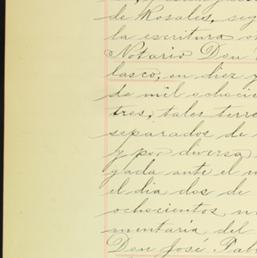 de Rosales, seg
la escritura o
Notario Don
lasco, en diez y
de mil ochocie
tres; tales terre
separados de
y por diversa
gada ante el n
el dia dos de
ochocientos n
mentaria del
Don José Pabl